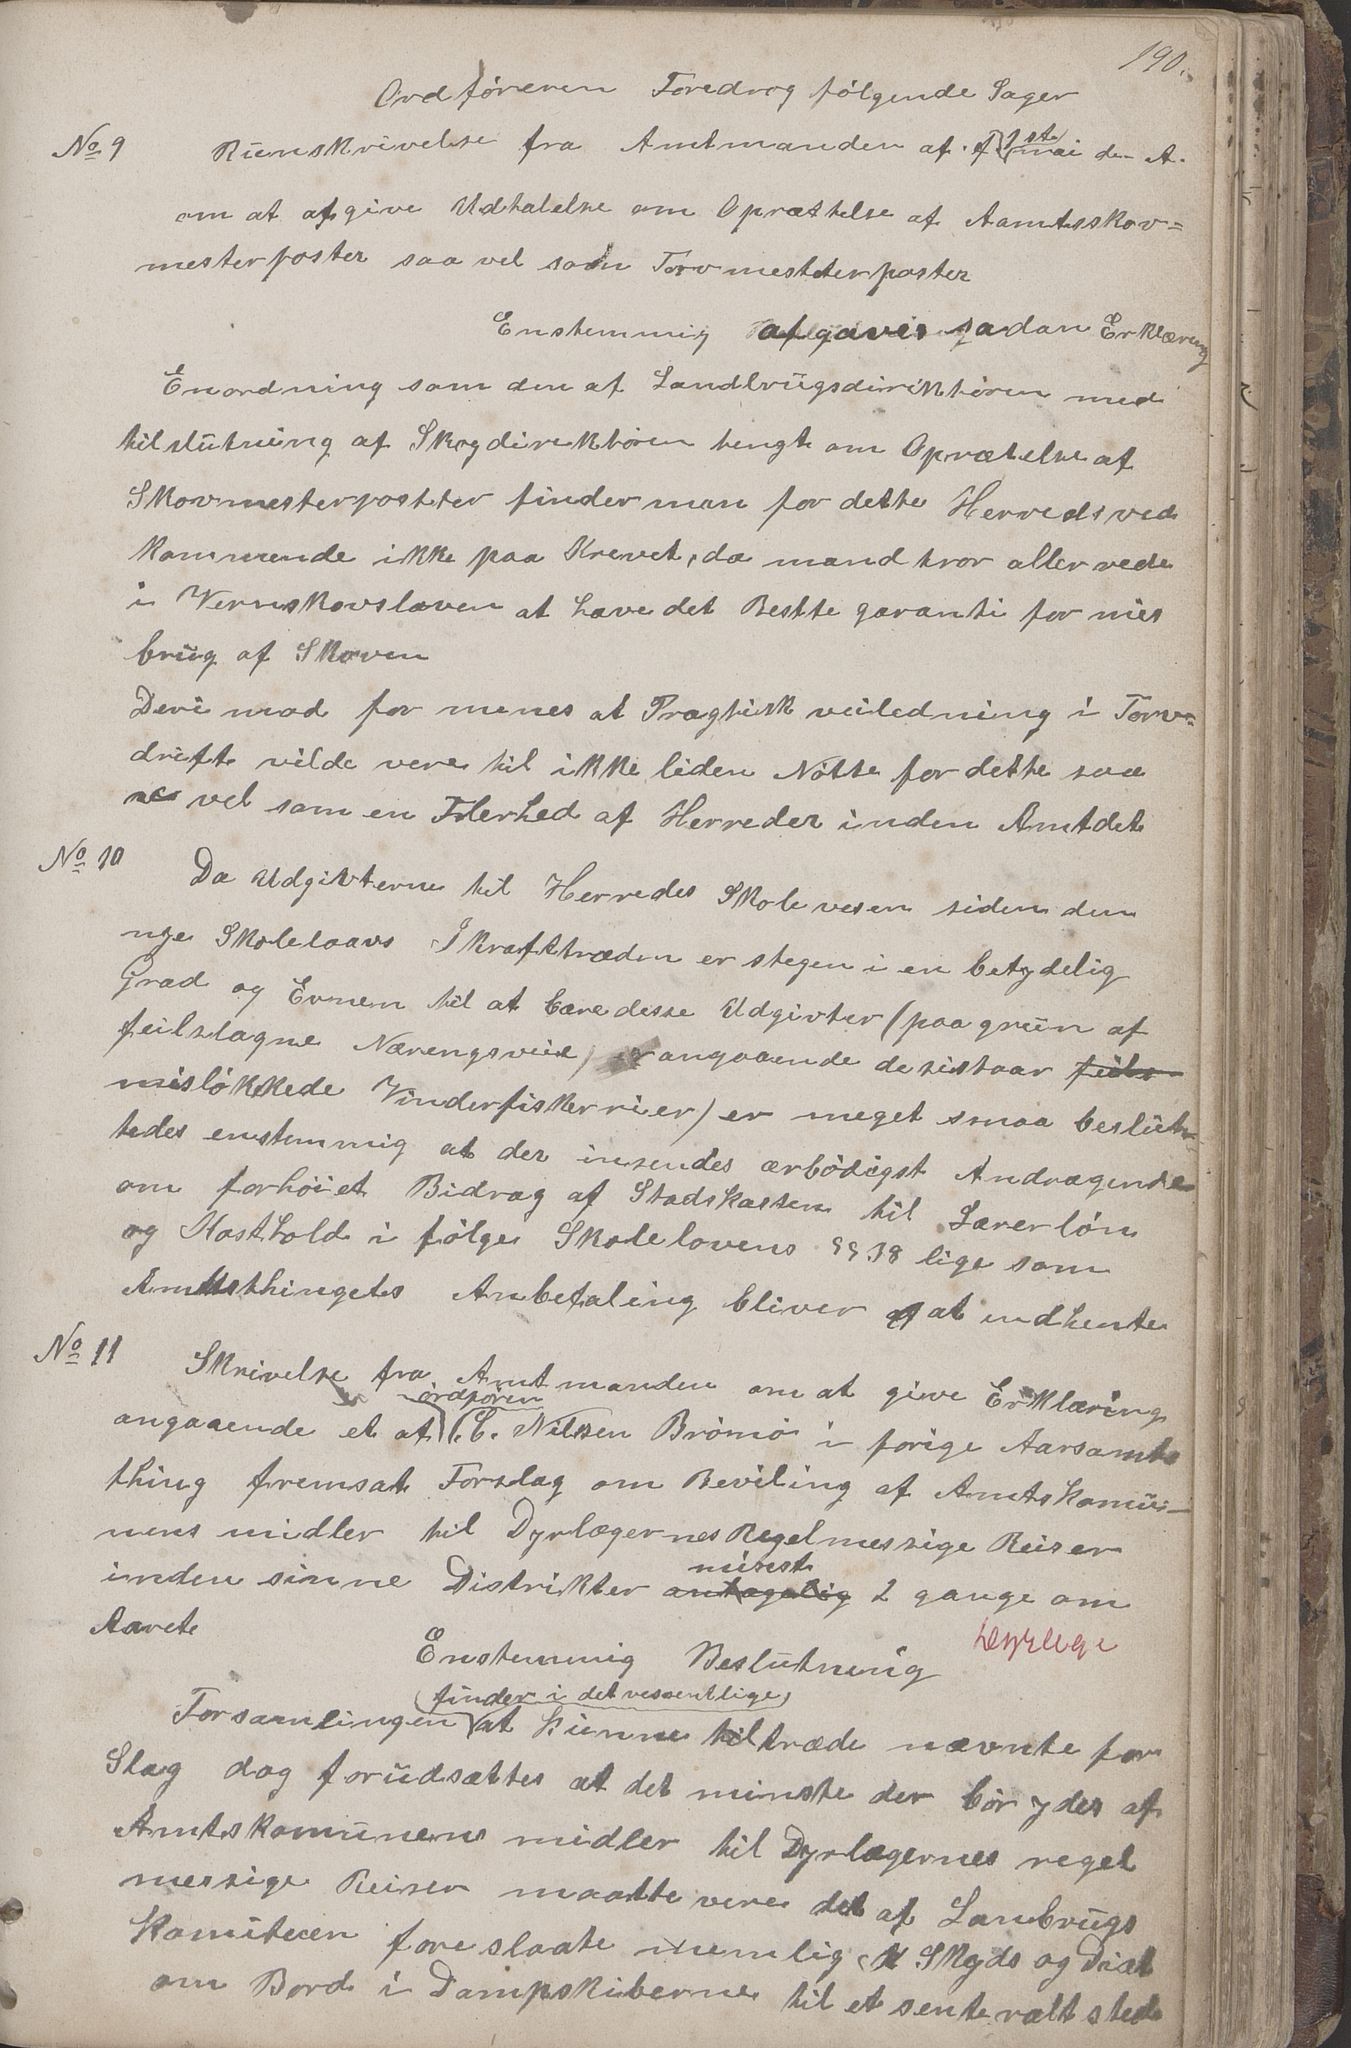 190.
Ordføreren Foredrog følgende Sager
No 9 Runskrivelse fra Amtmanden af 1st mai d. A.
om at afgive Udtalelse om Oprættelse af Aamtsskov=
mesterposter saa vel som Torvmestterposter
Enstemmig afgaves sadan Erklæring
Enordning som den af Landbrugsdirikhøren med
tilslutning af Skogdirektøren tengt om Oprætelse af
Skovmesterpostter finder man for dette Herreds ved
kommende ikke paa Krevet, da mand tror aller rede
i Vernskovsloven at have det Bestte garanti for mis
brug af Skoven
Deri mod for menes at Pragtisk veiledning i Torv=
drift vilde vere til ikke liden Nøtte for dette saa
vel som en Flerhed af Herreder inden Amtdet
No 10 Da Udgivterne til Herredes Skolevesen siden den
nye Skolelaavs Ikrafttræden er stegen i en betydelig
Grad og Evnen til at bære desse Udgivter (paa grun af
feilslagne Næringsveie, angaaende de sistaar
misløkkede Vinderfiskerrier) er meget smaa beslut-
tedes enstemmig at der insendes ærbødigst Andragende
om forhøiet Bidrag af Stadskassen til Lærerløn
og Kosthold i følge Skolelovens §§ 38 lige som
Amtsthingets Anbefaling bliver at indhente
No 11 Skrivelse fra Amtmanden om at give Erklæring
ordføren
angaaende et af C. Nilsen Brømø i forige Aarsamts
thing fremsat Forslag om Beviling af Amtskomu-
nens midler til Dyrlægernes Regelmessige Reiser
minst
inden sinne Distrikter antagelig 2 gange om
Aaret
Dyrlege
Enstemmig Beslutning
finder i det vessentlige
Forsamlingen at kunne tiltræde nævnte for
Slag dog forudsættes at det minste der bør ydes af
Amtskomunens midler til Dyrlægernes regel
messige Reiser maatte vere det af Lanbrugs
Komiteen foreslaate nemlig Skyds og Diæt
om Bord i Dampskiberne til et senteralt sted